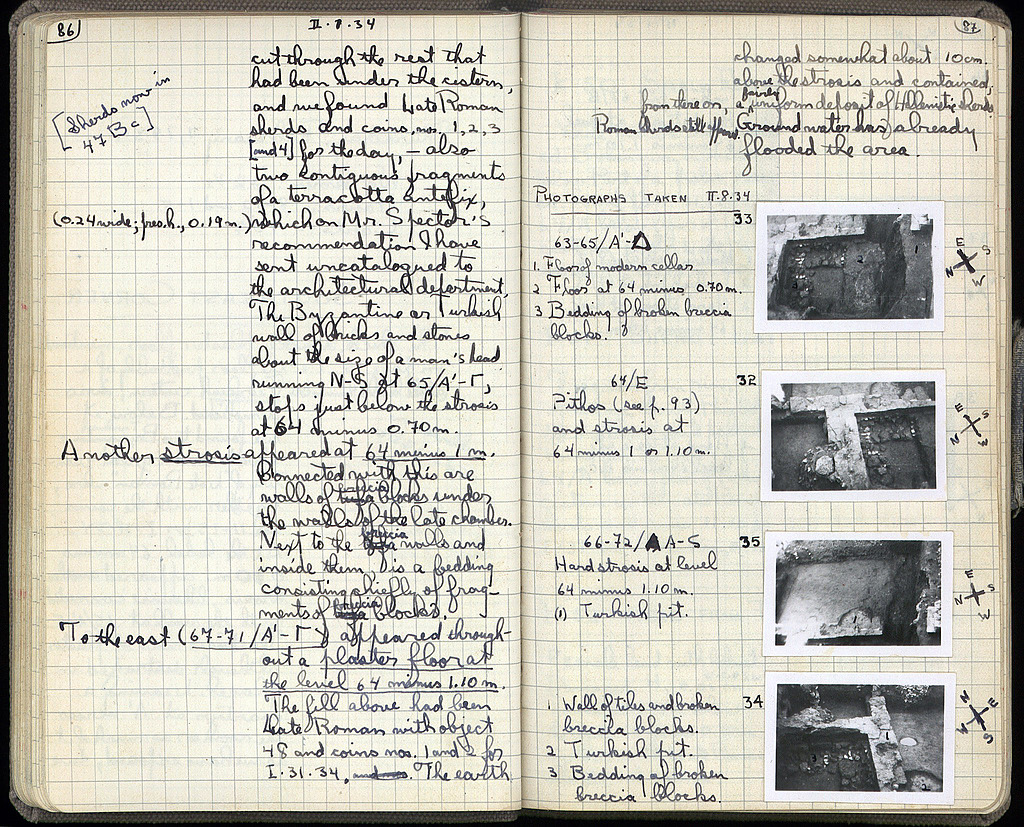 86
II·8·34
cut through the rest that
had been under the cistern,
and we found Late Roman
[Sherds now in
47 Bc]
sherds and coins, nos. 1, 2, 3
[and 4] for the day, – also
two contiguous fragments
of a terracotta antefix,
(0.24 wide; pres. h., 0.19 m.) which on Mr. Spector's
recommendation I have
sent uncatalogued to
the architectural department.
The Byzantine or Turkish
wall of bricks and stones
about the size of a man's head
running N-S at 65/A'-Γ,
stops just below the strosis
at 64 minus 0.70 m.
Another strosis appeared at 64 minus 1 m.
Connected with this are
walls of breccia blocks under
the walls of the late chamber.
Next to the breccia walls and
inside them, is a bedding
consisting chiefly of frag-
ments of breccia blocks.
To the east (67-71/A'-Γ) appeared through-
out a plaster floor at
the level 64 minus 1.10 m.
The fill above had been
Late Roman with object
48 and coins nos. 1 and 2 for
I·31·34. The earth
87
changed somewhat about 10 cm.
above the strosis and contained,
from there on, a fairly uniform deposit of Hellenistic sherds.
Roman sherds still appear. (Ground water has) already
flooded the area.
PHOTOGRAPHS TAKEN II·8·34
33
63-65/A'-Δ
1. Floor of modern cellar
2 Floor at 64 minus 0.70 m.
3 Bedding of broken breccia
blocks.
1
2
3
N E S W
32
64/E
Pithos (see p. 93)
and strosis at
64 minus 1 or 1.10 m.
N E S W
35
66-72/A-S
Hard strosis at level
64 minus 1.10 m.
(1) Turkish pit.
1
N E S W
34
1 Wall of tiles and broken
breccia blocks.
2 Turkish pit.
3 Bedding of broken
breccia blocks.
1
2
3
N E S W